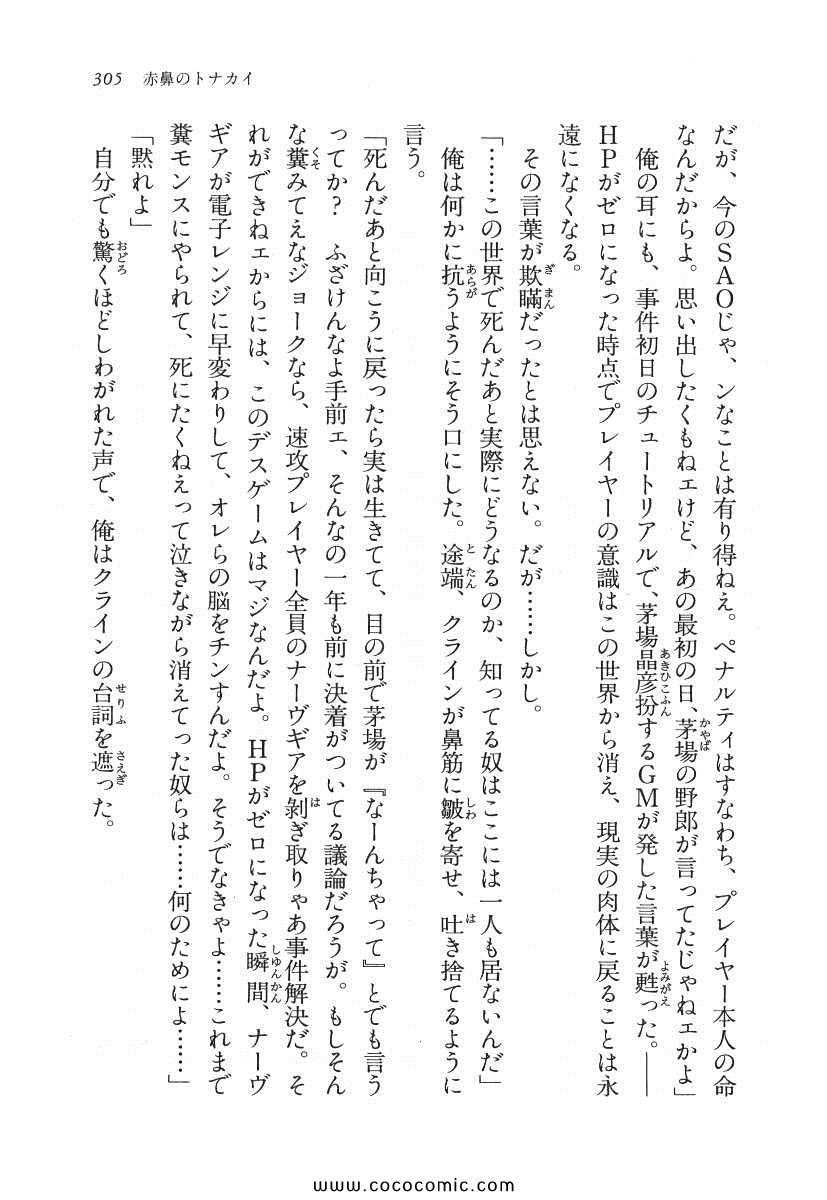 305 赤鼻のトナカイ
だが、今のSAOじゃ、ンなことは有り得ねえ。ペナルティはすなわち、プレイヤー本人の命
なんだからよ。思い出したくもねェけど、あの最初の日、茅場の野郎が言ってたじゃねェかよ」
俺の耳にも、事件初日のチュートリアルで、茅場晶彦扮するGMが発した言葉が甦った。――
HPがゼロになった時点でプレイヤーの意識はこの世界から消え、現実の肉体に戻ることは永
遠になくなる。
その言葉が欺瞞だったとは思えない。だが……しかし。
「……この世界で死んだあと実際にどうなるのか、知ってる奴はここには一人も居ないんだ」
俺は何かに抗うようにそう口にした。途端、クラインが鼻筋に皺を寄せ、吐き捨てるように
言う。
「死んだあと向こうに戻ったら実は生きてて、目の前で茅場が『なーんちゃって』とでも言う
ってか? ふざけんなよ手前ェ、そんなの一年も前に決着がついてる議論だろうが。もしそん
な糞みてえなジョークなら、速攻プレイヤー全員のナーヴギアを剥ぎ取りゃあ事件解決だ。そ
れができねェからには、このデスゲームはマジなんだよ。HPがゼロになった瞬間、ナーヴ
ギアが電子レンジに早変わりして、オレらの脳をチンすんだよ。そうでなきゃよ……これまで
糞モンスにやられて、死にたくねえって泣きながら消えてった奴らは……何のためによ……」
「黙れよ」
自分でも驚くほどしわがれた声で、俺はクラインの台詞を遮った。
www.cococomic.com